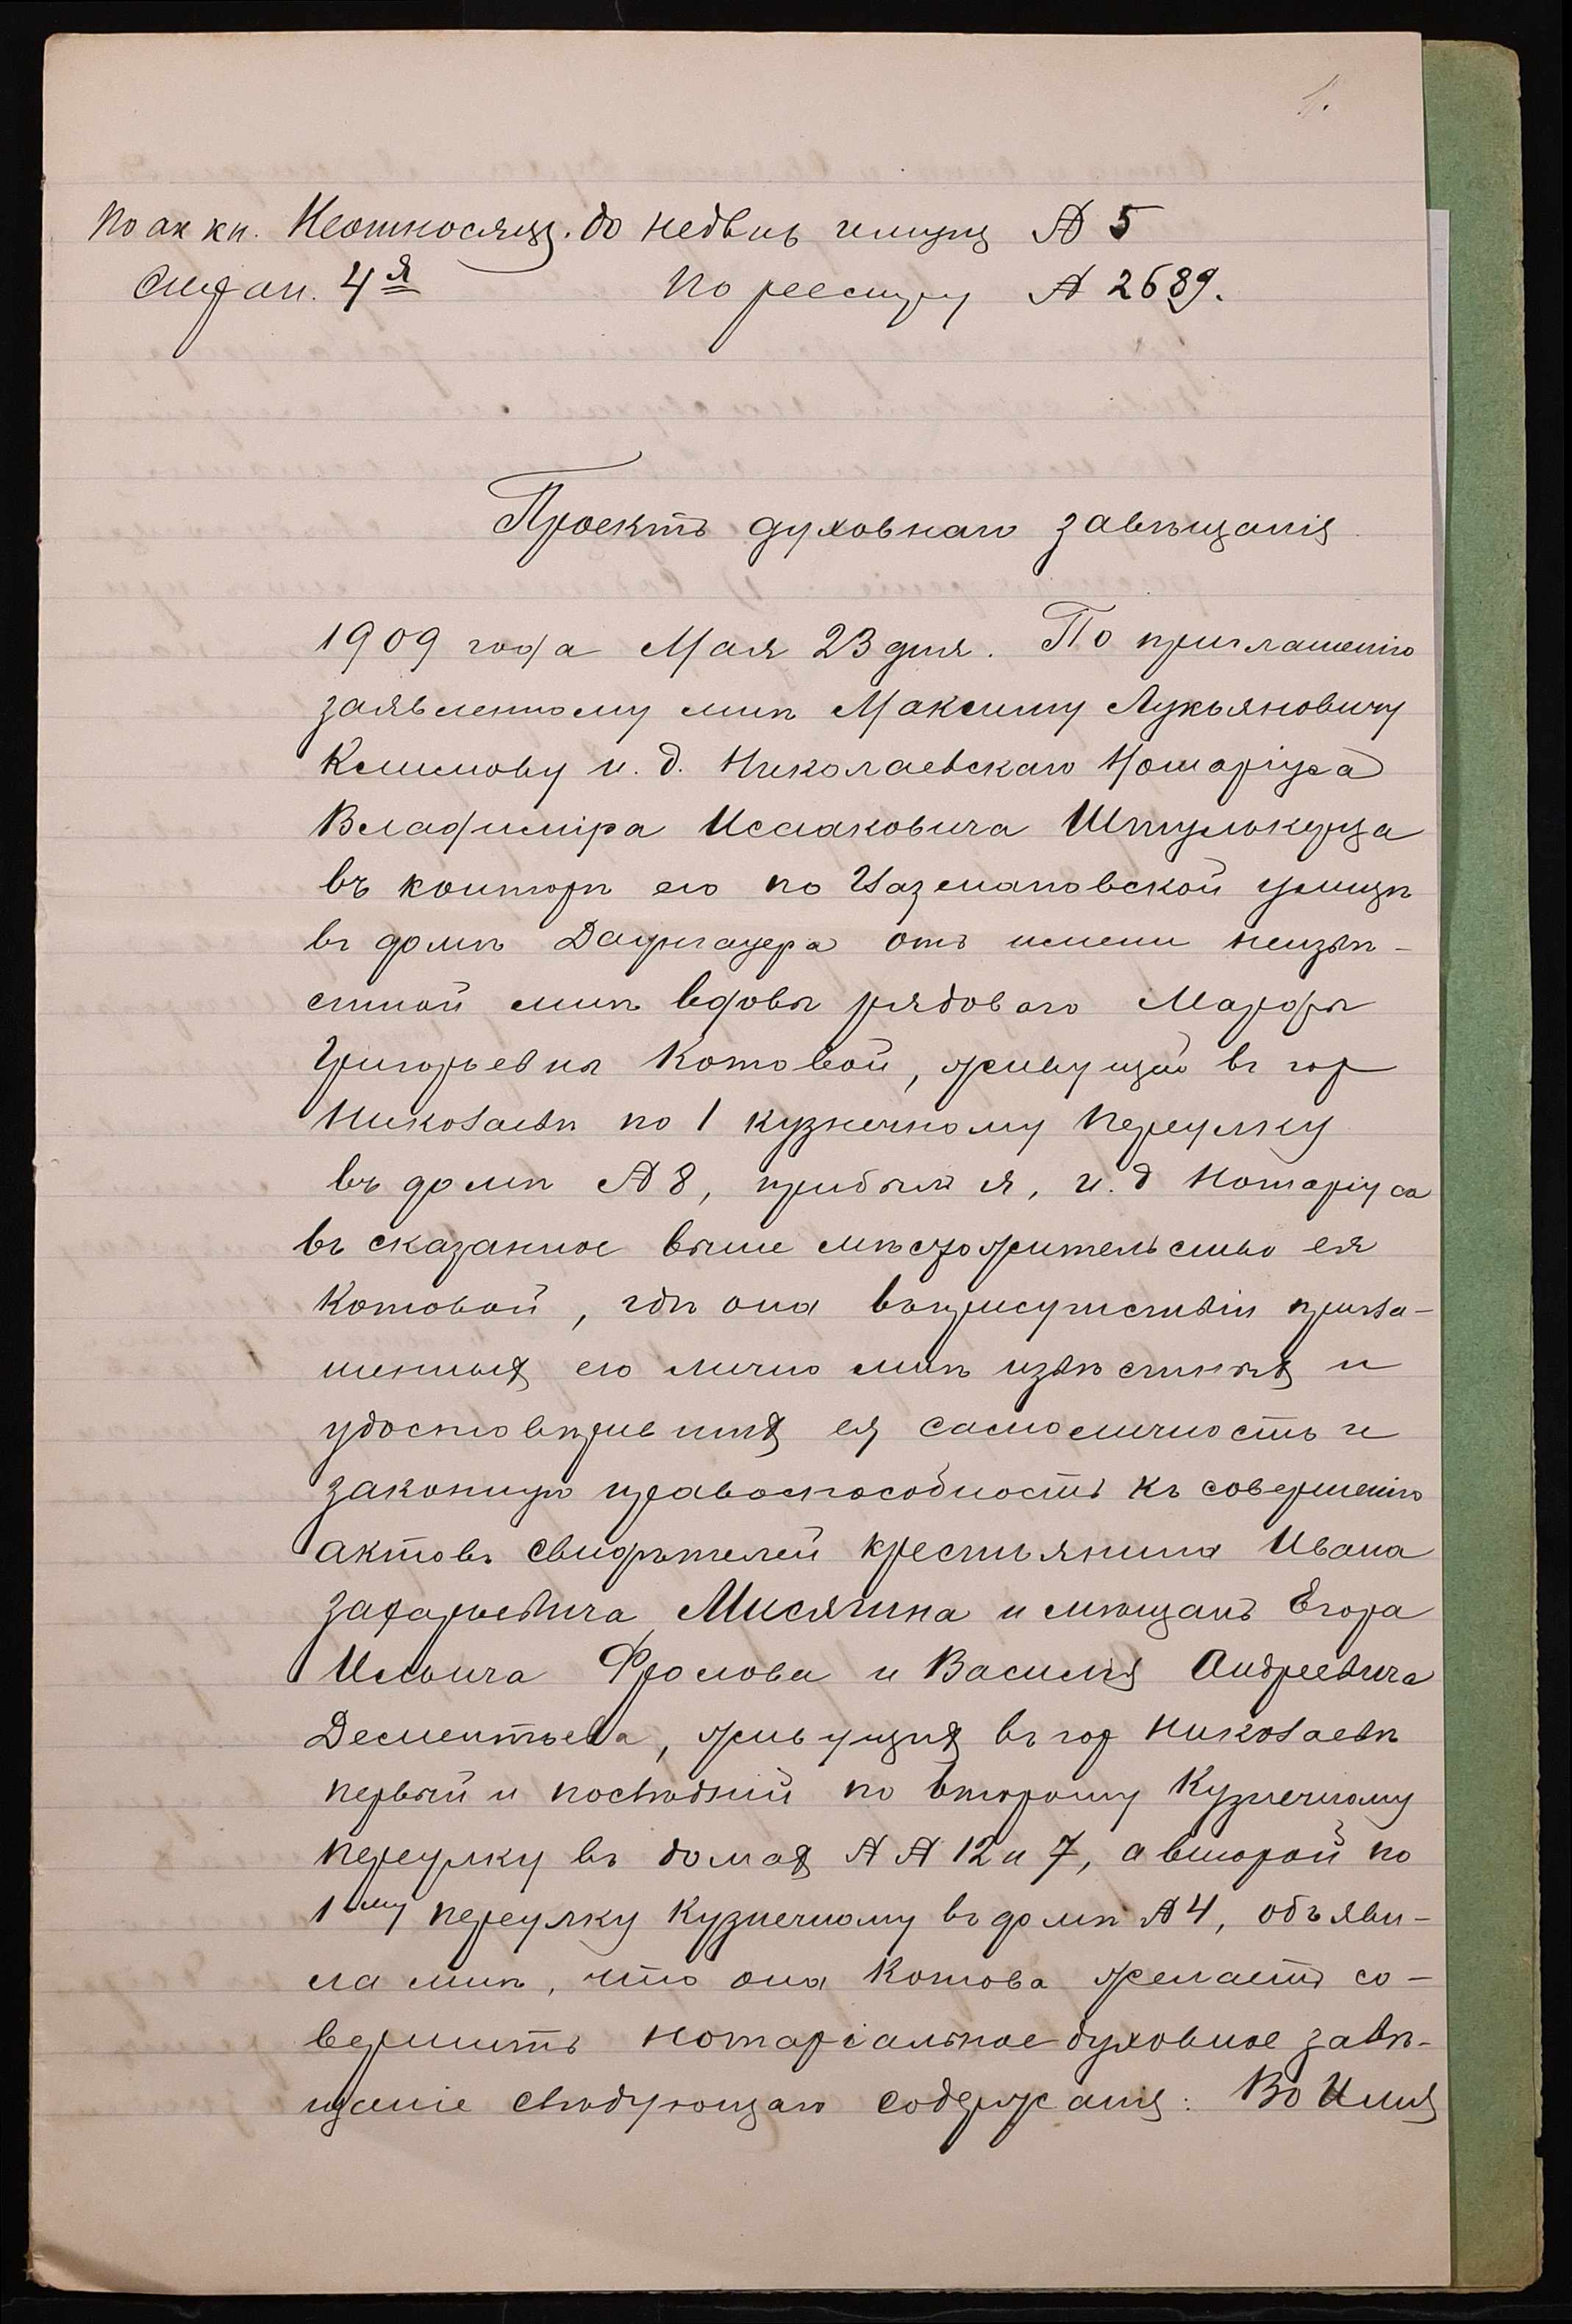 1.
По ак кн. Неотносящ. до недвиж имущ № 5
Стран. 4я По реестру № 2689.
Проектъ духовнаго завѣщанія
1909 года Мая 23 дня. По приглашенію
заявленному мнѣ Максиму Лукьяновичу
Климову и. д. Николаевскаго Нотаріуса
Владиміра Исааковича Штулькерца
въ конторѣ его по улицѣ
въ домѣ отъ имени неизвѣ-
стной мнѣ вдовы рядового Марфы
Григорьевны Котовой, живущей въ гор
Николаевѣ по 1 кузнечному переулку
въ домѣ № 8, прибылъ я, и. д Нотаріуса
въ сказанное выше мѣстожительство ея
Котовой, гдѣ она въ присутствіи пригла-
шенныхъ ею лично мнѣ извѣстныхъ и
удостовѣрившихъ ея самоличность и
законную правоспособность къ совершенію
актовъ свидѣтелей крестьянина Ивана
Захарьевича Мисягина и мѣщанъ Егора
Ильича Фролова и Василія Андреевича
Дементьева, живущихъ въ гор Николаевѣ
первый и послѣдній по второму Кузнечному
переулку въ домахъ № № 12 и 7, а второй по
1му переулку Кузнечному въ домѣ № 4, объяви-
ла мнѣ, что она Котова желаетъ со-
вершить нотаріальное духовное завѣ-
щаніе слѣдующаго содержанія: Во Имя